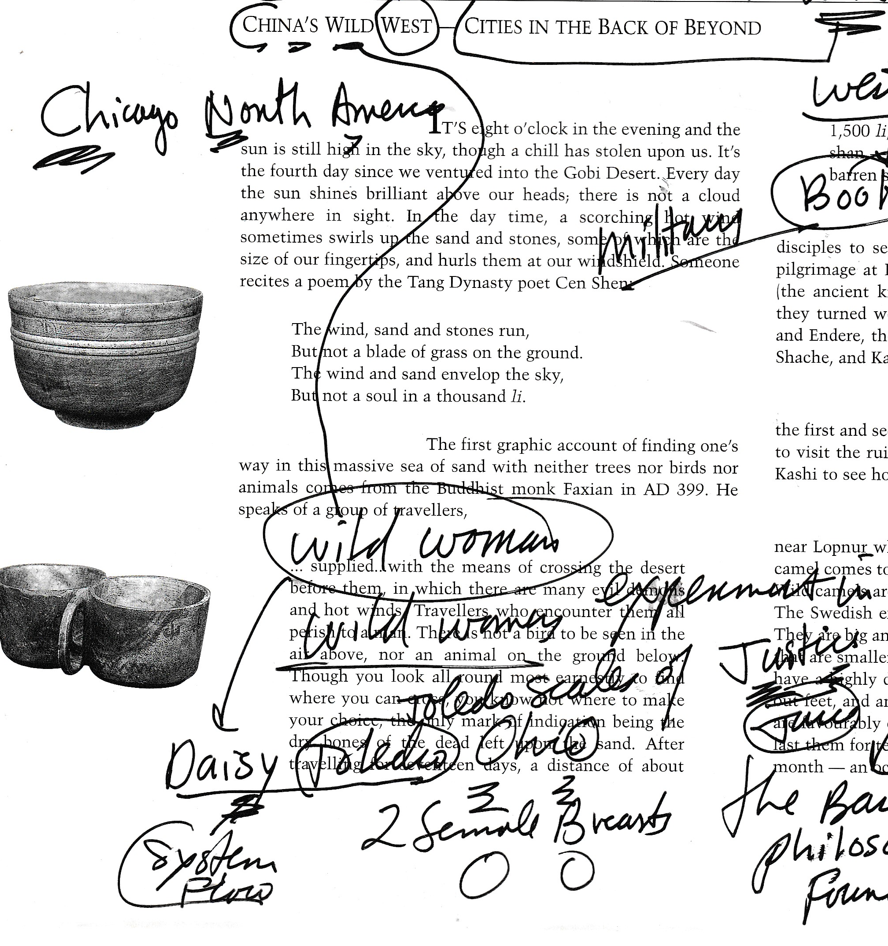 CHINA'S WILD WEST — CITIES IN THE BACK OF BEYOND
Chicago North America
IT'S eight o'clock in the evening and the
sun is still high in the sky, though a chill has stolen upon us. It's
the fourth day since we ventured into the Gobi Desert. Every day
the sun shines brilliant above our heads; there is not a cloud
anywhere in sight. In the day time, a scorching hot wind
sometimes swirls up the sand and stones, some of which are the
size of our fingertips, and hurls them at our windshield. Someone
recites a poem by the Tang Dynasty poet Cen Shen:
military
The wind, sand and stones run,
But not a blade of grass on the ground.
The wind and sand envelop the sky,
But not a soul in a thousand li.
The first graphic account of finding one's
way in this massive sea of sand with neither trees nor birds nor
animals comes from the Buddhist monk Faxian in AD 399. He
speaks of a group of travellers,
wild woman
... supplied... with the means of crossing the desert
before them, in which there are many evil demons
and hot winds. Travellers who encounter them all
perish to a man. There is not a bird to be seen in the
air above, nor an animal on the ground below.
Though you look all round most earnestly to find
where you can cross, you know not where to make
your choice, the only mark of indication being the
dry bones of the dead left upon the sand. After
travelling for seventeen days, a distance of about
wild woman
experiment in
Toledo scales of
Justice
Daisy Toledo Ohio
2 Female Breasts
System
Flow
1,500 li,
shan
barren
disciples to se
pilgrimage at
(the ancient k
they turned w
and Endere, th
Shache, and Ka
the first and se
to visit the rui
Kashi to see ho
near Lopnur wh
camel comes to
wild camels ar
The Swedish e
They are big an
that are smaller
have a highly
out feet, and ar
are favourably
last them for te
month — an
the Ba
philoso
Foun